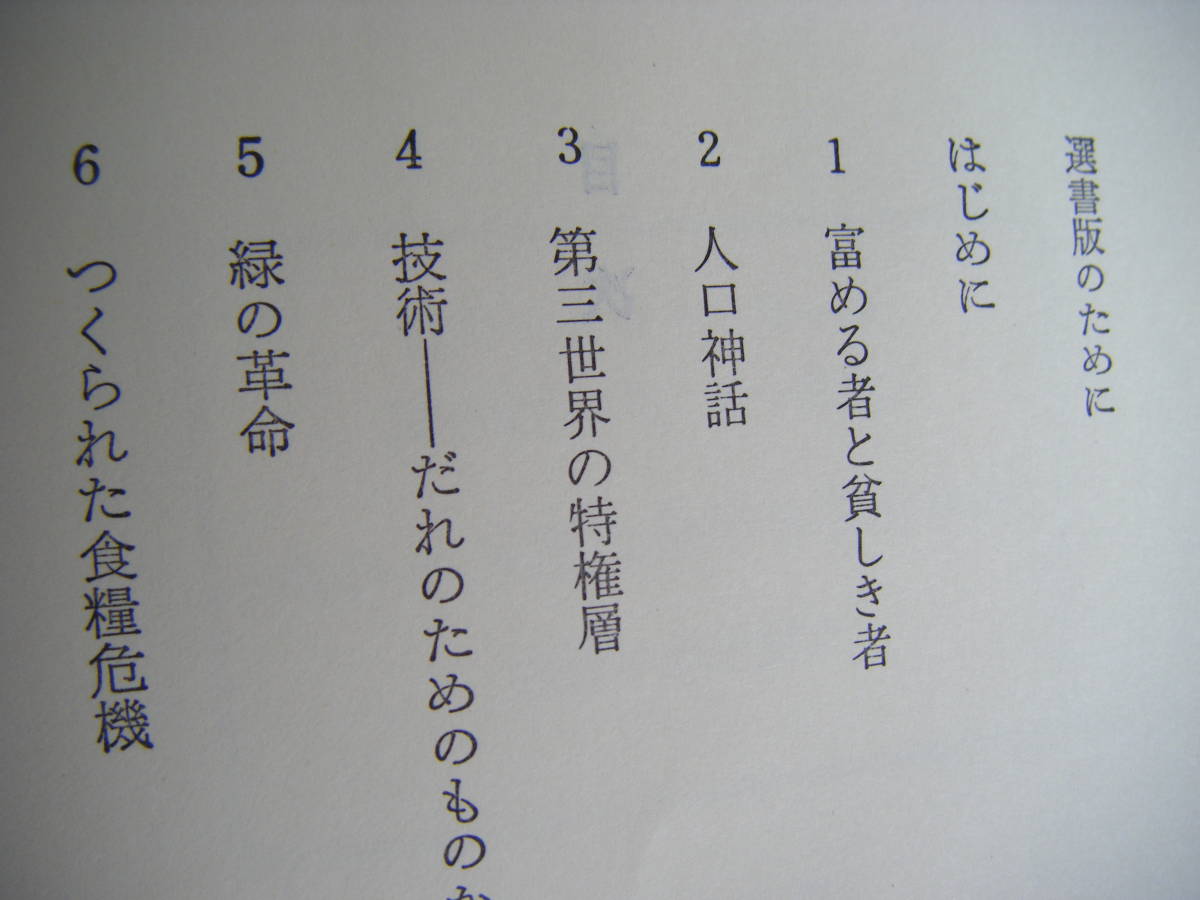 選書版のために
はじめに
1 富める者と貧しき者
2 人口神話
3 第三世界の特権層
4 技術——だれのためのものか
5 緑の革命
6 つくられた食糧危機